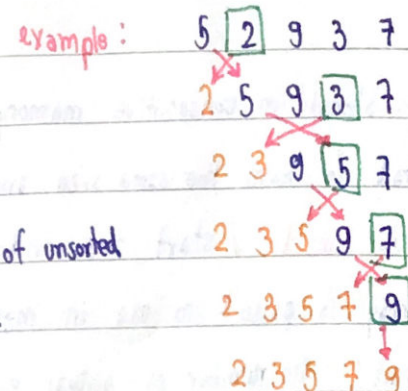 example: 5 2 9 3 7
2 5 9 3 7
2 3 9 5 7
of unsorted 2 3 5 9 7
2 3 5 7 9
2 3 5 7 9